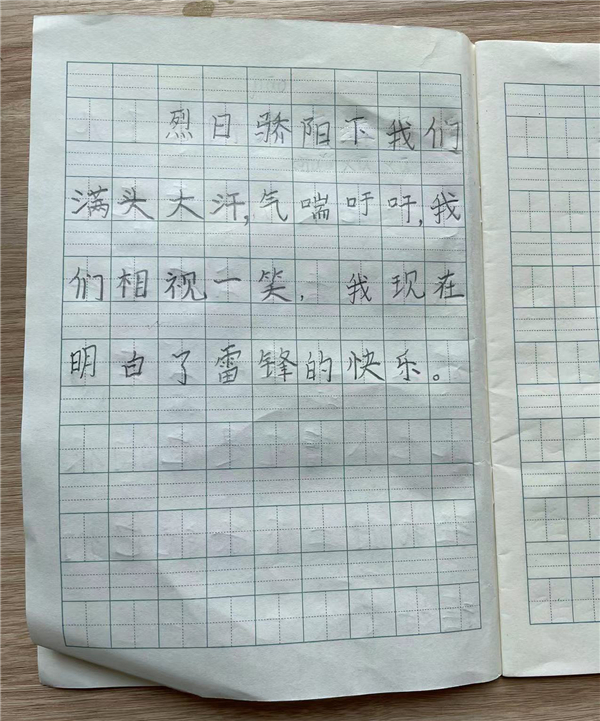 烈日骄阳下我们
满头大汗,气喘吁吁,我
们相视一笑,我现在
明白了雷锋的快乐。